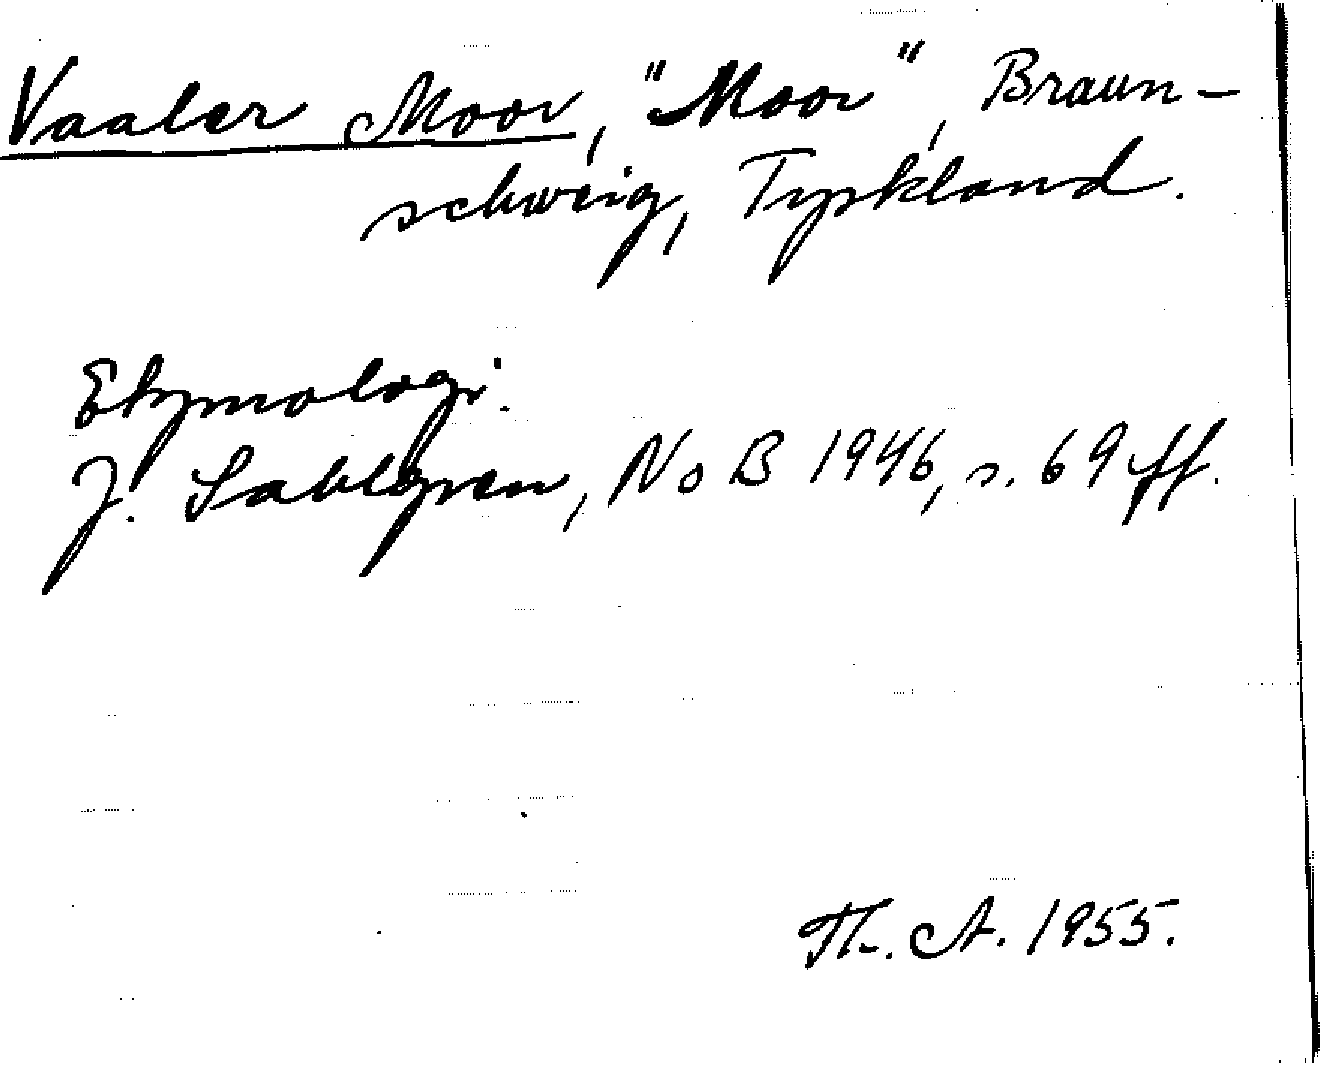 Vaaler Moor, "Moor", Braun-
schweig, Tyskland.
Etymologi.
J. Sahlgren, NoB 1946, s. 69 ff.
Th. A. 1955.